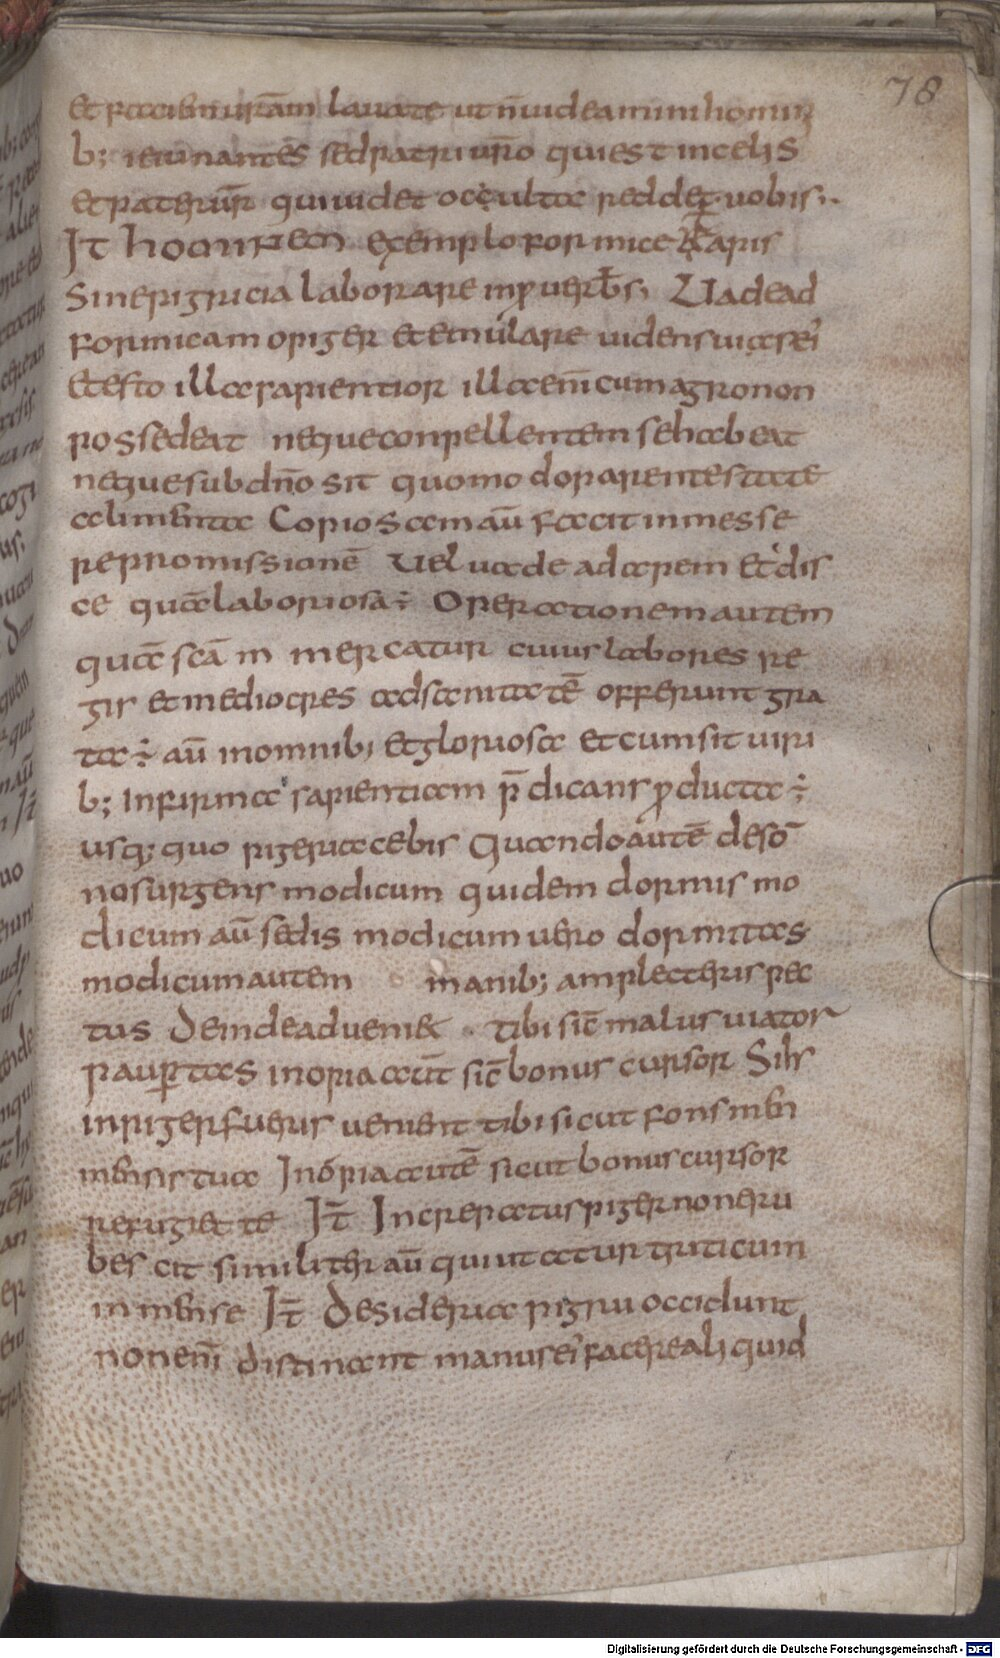 78
et faciem urām lauate ut n̄ uideamini homini
b; ieiunantes sed patri uro qui est in celis
et pater ur̄ qui uidet occulta reddet uobis..
It hoc in rem exemplo formice &apis
sine pigricia laborare in ꝓuerb̄s, Uade ad
formicam o piger et emulare uidens uias ei
et esto illa sapientior illa eni cum agro non
possedeat neque conpellentem se habeat
neque sub dn̄o sit quomodo parentes tate
alimenta Copiosam aū facit in messe
repromissionē Uel uade ad apem et dis
ce quā laboriosa÷ Operationem autem
quā scā m mercatur cuius labores re
gis et mediocres ad sanitatē offerunt gra
ta÷ aū in omnib; et gloriosa et cum sit uiri
b; infirma sapientiam p̄dicans ꝓducta÷
usq; quo piger iacebis Quando autē de sō
no surgens modicum quidem dormis mo
dicum aū sedis modicum uero dormitas
modicum autem manib; amplecteris pec
tus Deinde adueni& tibi sic̄ malus uiator
paupertas inopia aūt sic̄ bonus cursor Si his
inpiger fueris ueniet tibi sicut fons men
mensis tua Inopia autē sicut bonus cursor
refugiet te It̄ Increpatus piger non eru
bescit similiter aū qui iutatur triticum
in mense It̄ Desideria pigru occidunt
non enī distinant manus ei facere aliquid
Digitalisierung gefördert durch die Deutsche Forschungsgemeinschaft - DFG